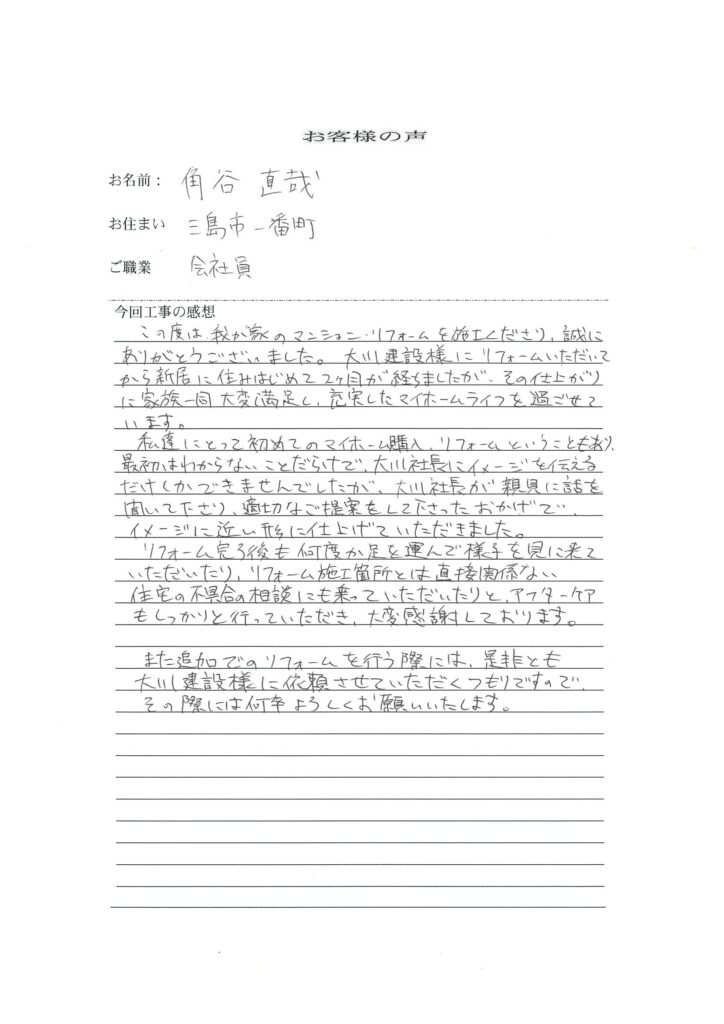 お客様の声
お名前： 角谷 直哉
お住まい 三島市一番町
ご職業 会社員
今回工事の感想
この度は我が家のマンション・リフォームを施工くださり、誠に
ありがとうございました。大川建設様にリフォームいただいて
から新居に住みはじめて2ヶ月が経ちましたが、その仕上がり
に家族一同大変満足し、充実したマイホームライフを過ごせて
います。
私達にとって初めてのマイホーム購入、リフォームということもあり、
最初はわからないことだらけで、大川社長にイメージを伝える
だけしかできませんでしたが、大川社長が親身に話を
聞いて下さり、適切なご提案をして下さったおかげで、
イメージに近い形に仕上げていただきました。
リフォーム完了後も何度か足を運んで様子を見に来て
いただいたり、リフォーム施工箇所とは直接関係ない
住宅の不具合の相談にも乗っていただいたりと、アフターケア
もしっかりと行っていただき、大変感謝しております。
また追加でのリフォームを行う際には、是非とも
大川建設様に依頼させていただくつもりですので、
その際には何卒よろしくお願いいたします。